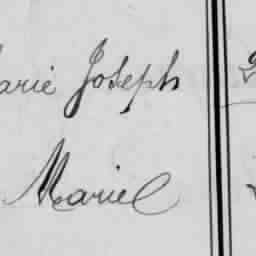 arie Joseph
Marie